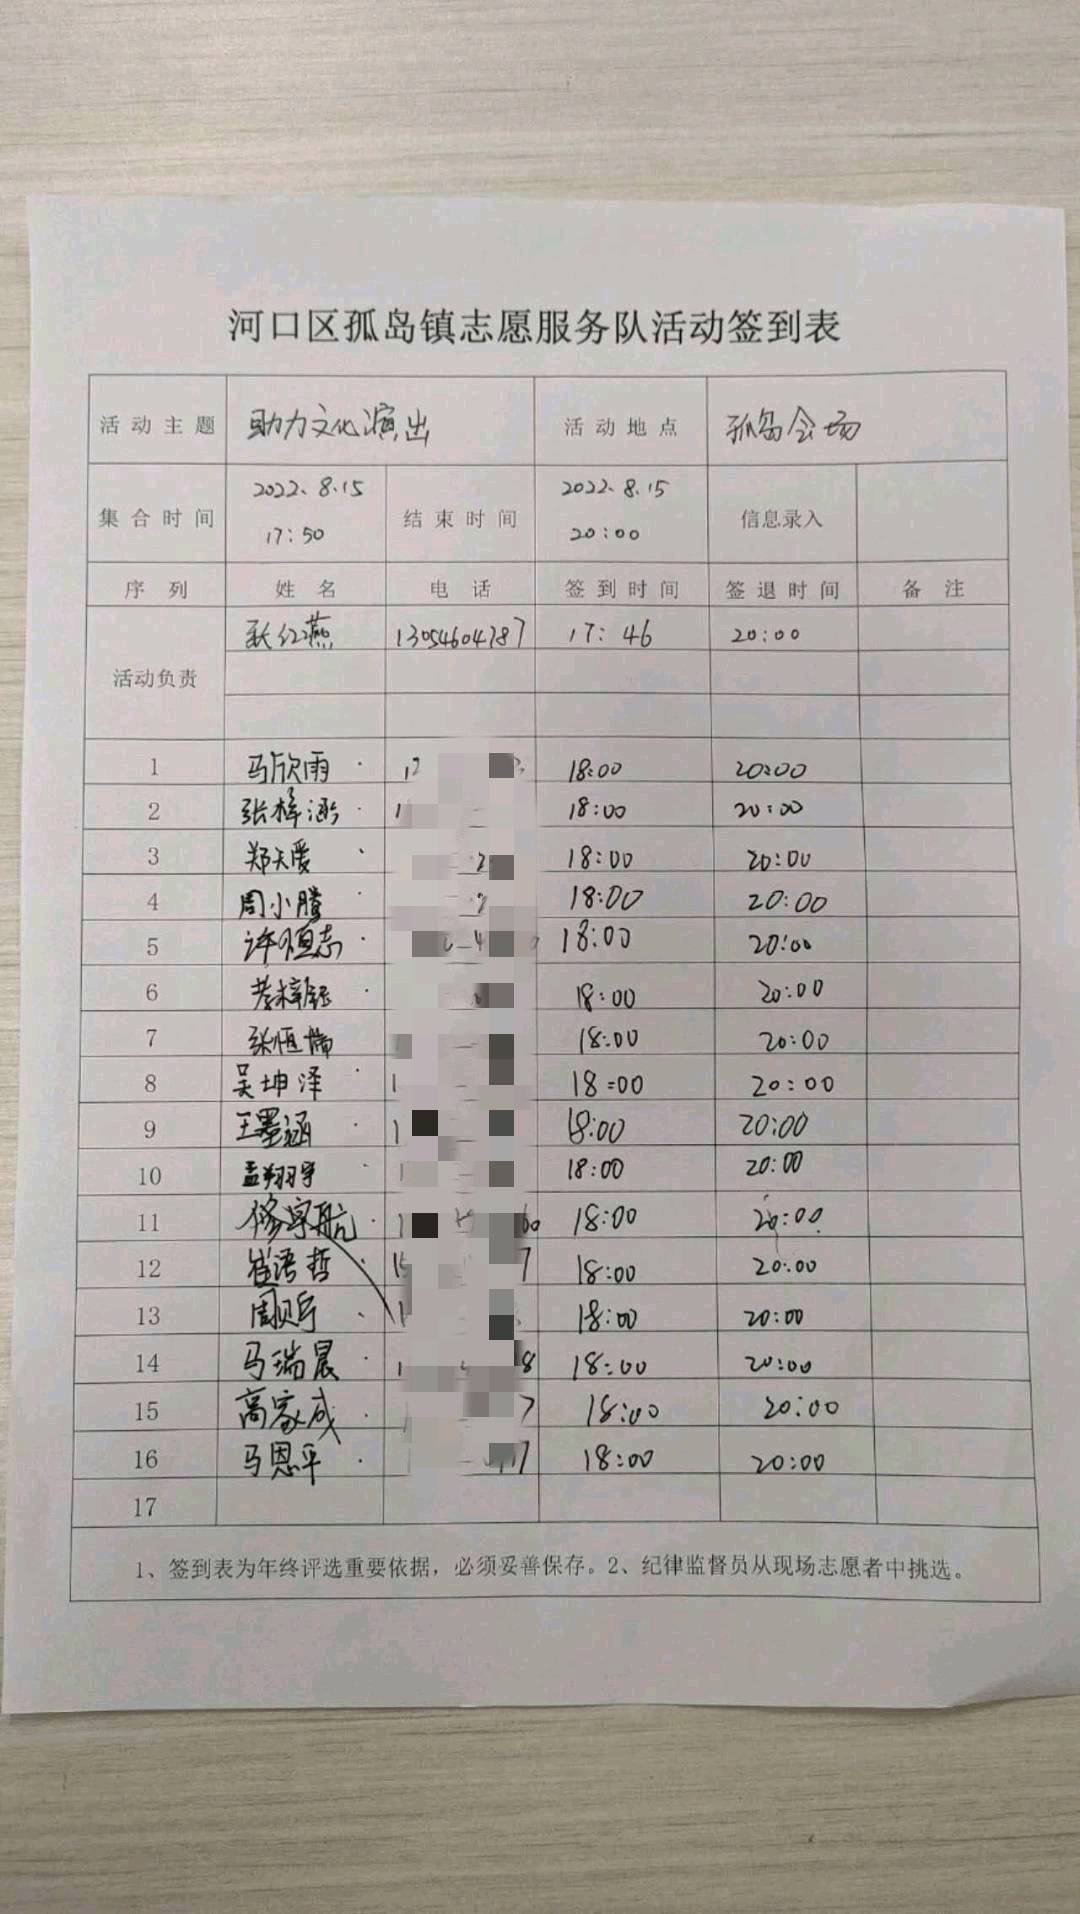 河口区孤岛镇志愿服务队活动签到表
活动主题 助力文化演出 活动地点 孤岛会场
集合时间 2022.8.15 17:50 结束时间 2022.8.15 20:00 信息录入
序列 姓名 电话 签到时间 签退时间 备注
活动负责 红燕 13054604787 17:46 20:00
1 马欣雨 18:00 20:00
2 张梓涵 18:00 20:00
3 郑天爱 18:00 20:00
4 周小腾 18:00 20:00
5 许恒志 18:00 20:00
6 梓钰 18:00 20:00
7 张恒瑞 18:00 20:00
8 吴坤泽 18:00 20:00
9 王墨涵 18:00 20:00
10 孟翔宇 18:00 20:00
11 修宇航 18:00 20:00
12 崔语哲 18:00 20:00
13 周 18:00 20:00
14 马瑞晨 18:00 20:00
15 高家成 18:00 20:00
16 马恩平 18:00 20:00
17
1、签到表为年终评选重要依据，必须妥善保存。2、纪律监督员从现场志愿者中挑选。